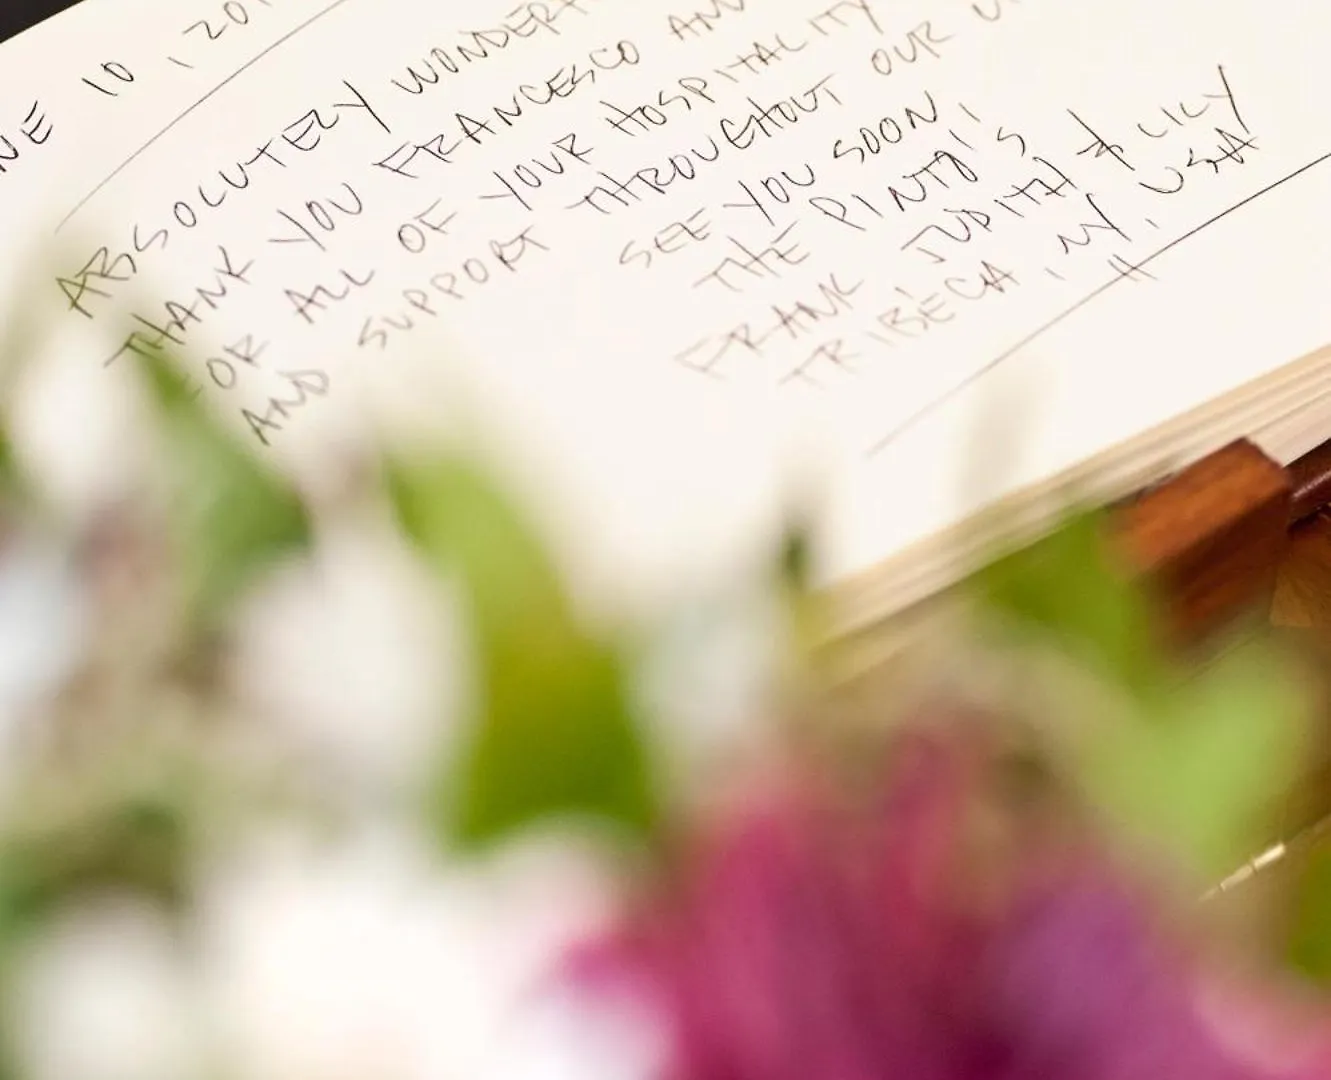 NE 10, 201
ABSOLUTELY WONDERF
THANK YOU FRANCESCO AND
FOR ALL OF YOUR HOSPITALITY
AND SUPPORT THROUGHOUT OUR
SEE YOU SOON,
THE PINTO'S
FRANK JUDITH & LILY
TRIBECA, NY, USA